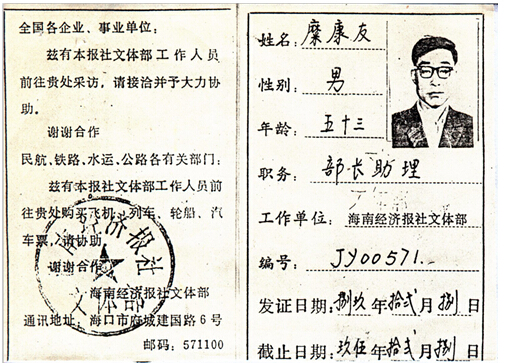 全国各企业、事业单位:
兹有本报社文体部工作人员
前往贵处采访,请接洽并予大力协
助。
谢谢合作
民航、铁路、水运、公路各有关部门:
兹有本报社文体部工作人员前
往贵处购买飞机、列车、轮船、汽
车票,请协助。
谢谢合作
海南经济报社文体部
通讯地址:海口市府城建国路6号
邮码:571100
南经济报社
文体部
姓名:糜康友
性别:男
年龄:五十三
职务:部长助理
工作单位:海南经济报社文体部
编号:JY00571
发证日期:捌玖年拾贰月捌日
截止日期:玖伍年拾贰月捌日